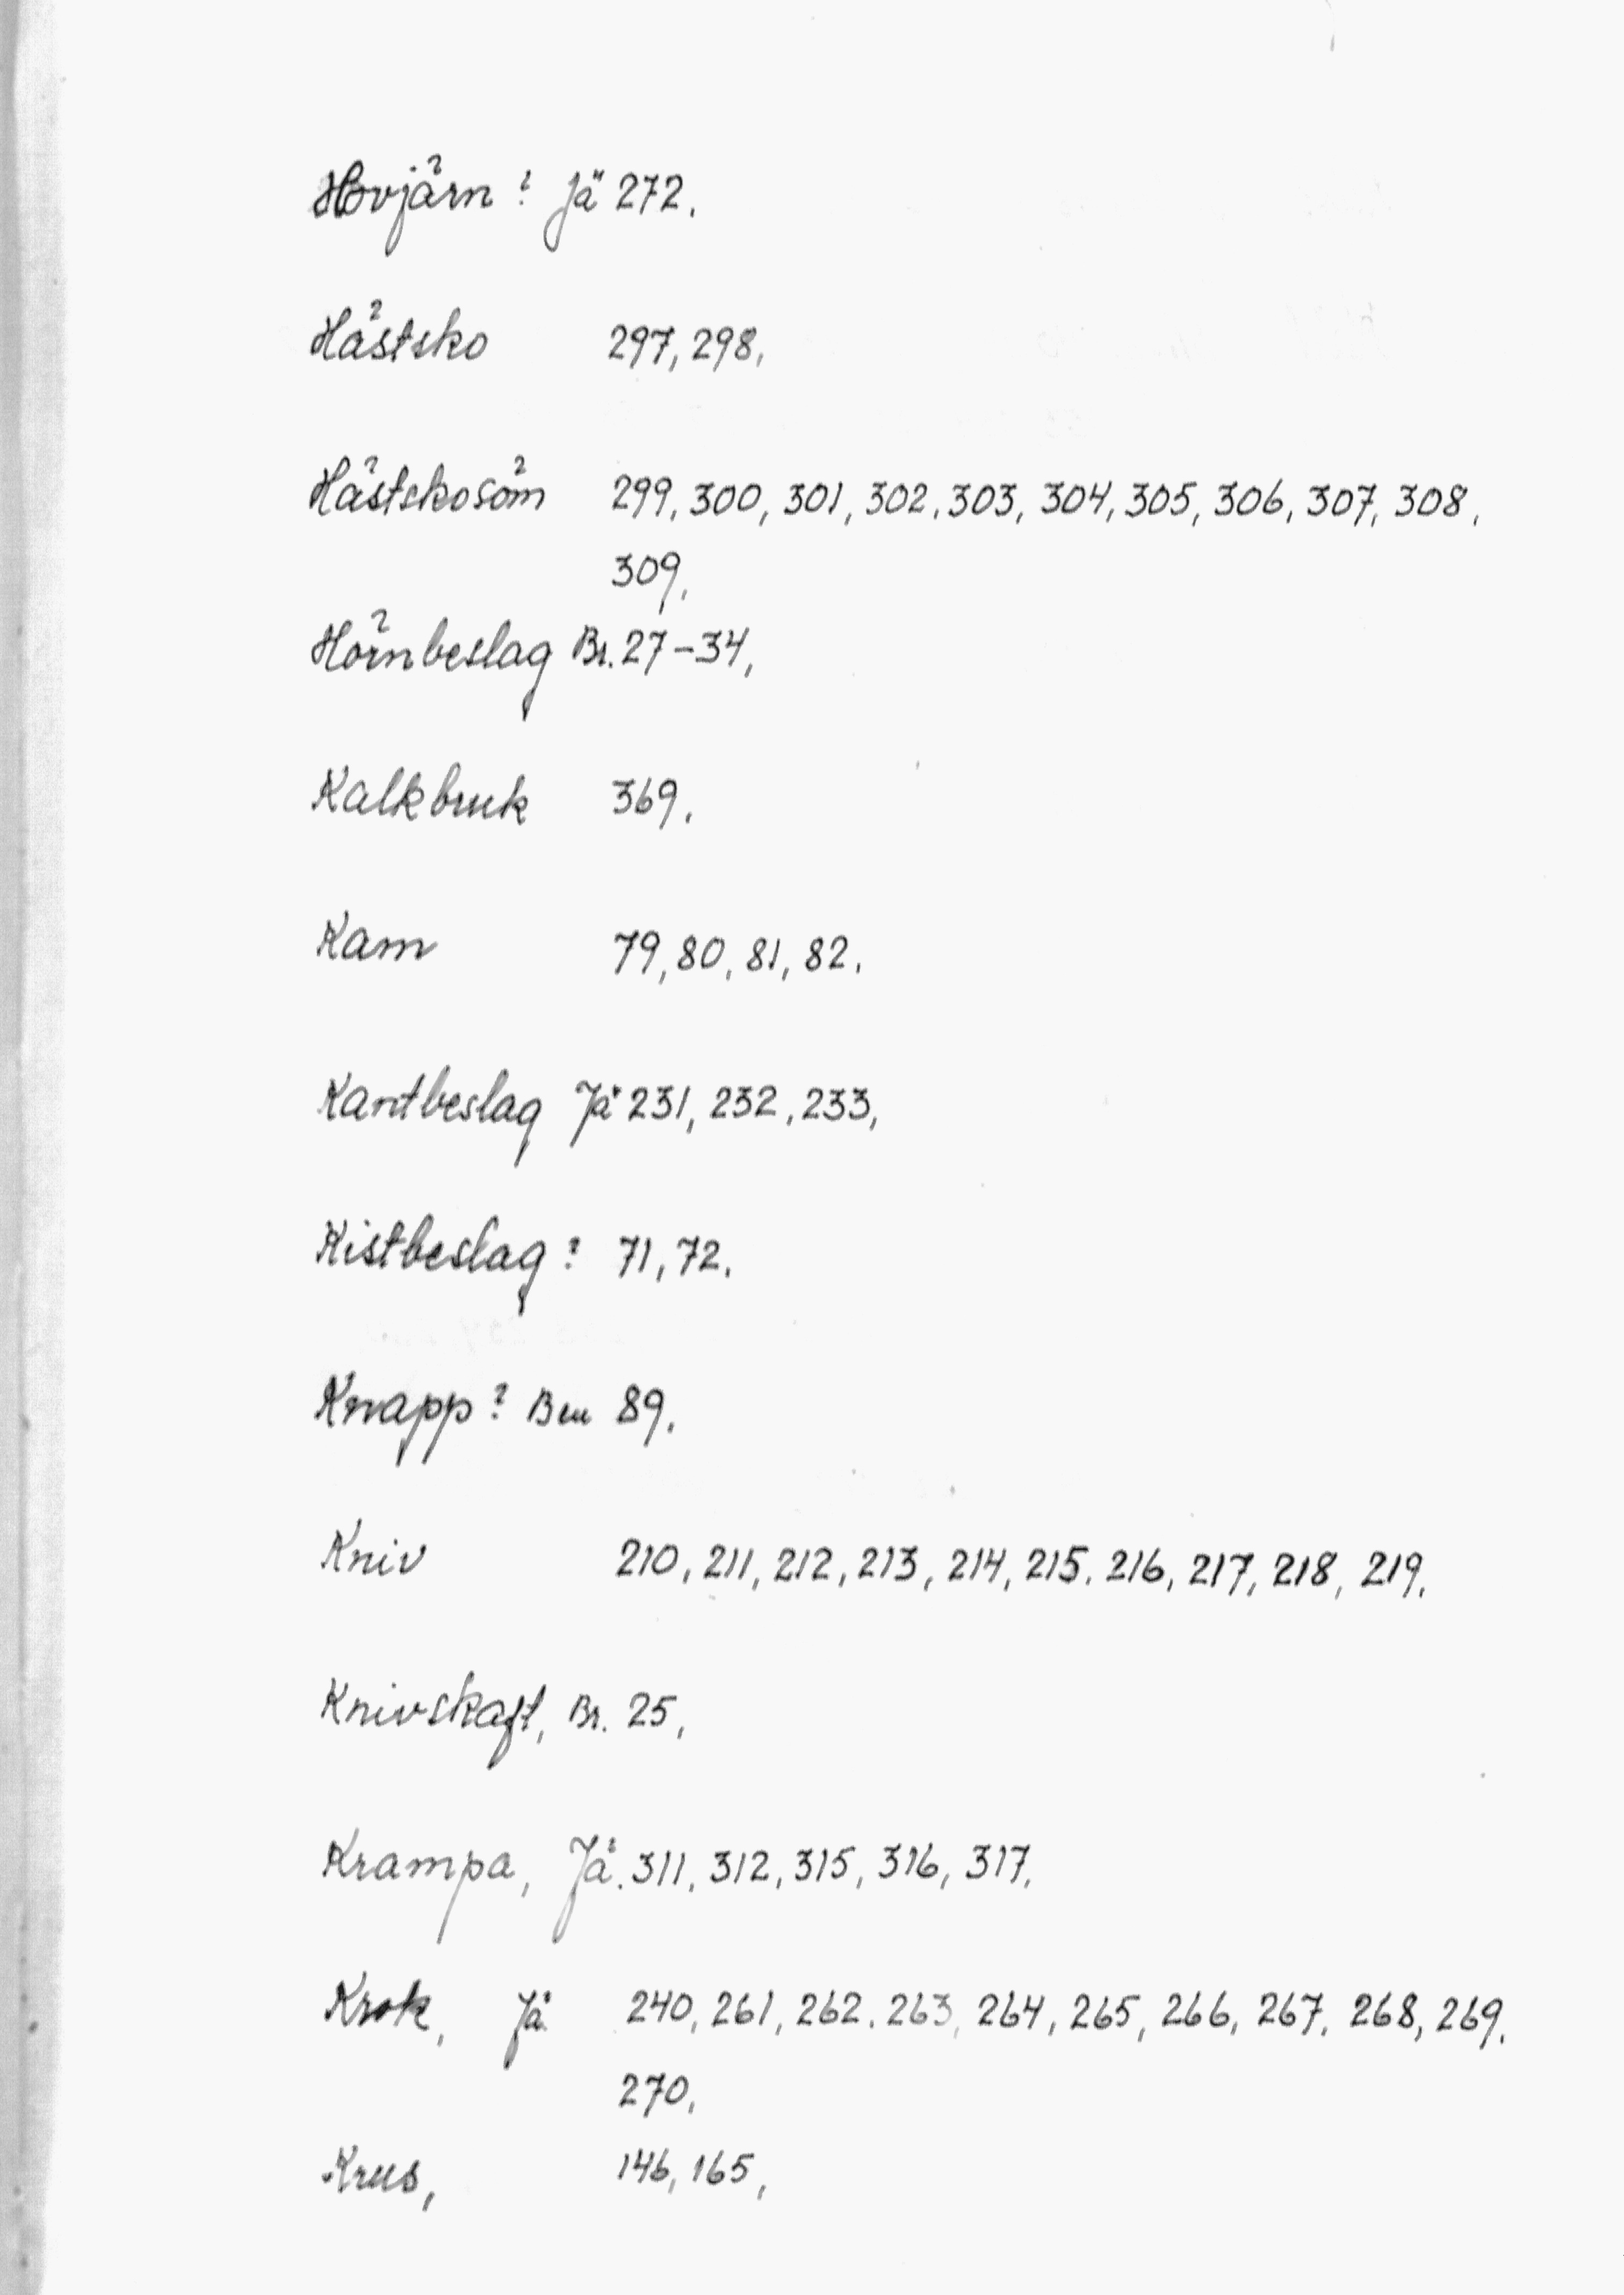 Hovjärn? Jä 272.
Hästsko 297, 298,
Hästskosöm 299, 300, 301, 302, 303, 304, 305, 306, 307, 308,
309,
Hörnbeslag Br. 27-34,
Kalkbruk 369.
Kam 79, 80, 81, 82.
Kantbeslag Jä 231, 232, 233,
Kistbeslag? 71, 72.
Knapp? Ben 89.
Kniv 210, 211, 212, 213, 214, 215. 216, 217, 218, 219.
Knivskaft, Br. 25,
Krampa, Jä. 311, 312, 315, 316, 317,
Krok, Jä 240, 261, 262. 263, 264, 265, 266, 267, 268, 269.
270,
Krus, 146, 165,